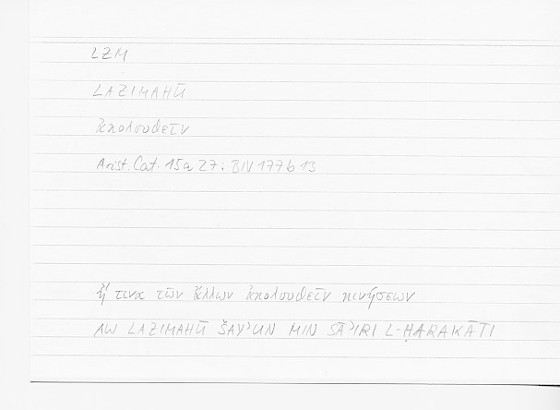 LZM
LAZIMAHŪ
ἀκολουθεῖν
Arist. Cat. 15a 27; BIV 177b 13
ἤ τινα τῶν ἄλλων ἀκολουθεῖν κινήσεων
AW LAZIMAHŪ ŠAYʾUN MIN SĀʾIRI L-ḤARAKĀTI